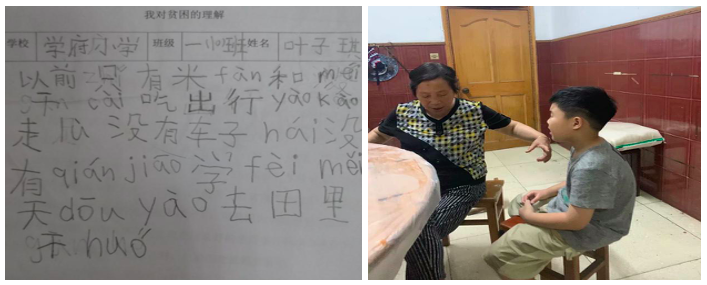 我对贫困的理解
学校 学府小学 班级 一10班 姓名 叶子琪
以前只有米fàn和méi
gān cài吃出行yào kào
走lù没有车子hái没
有qián jiāo学fèi měi
天dōu yào去田里
干huó